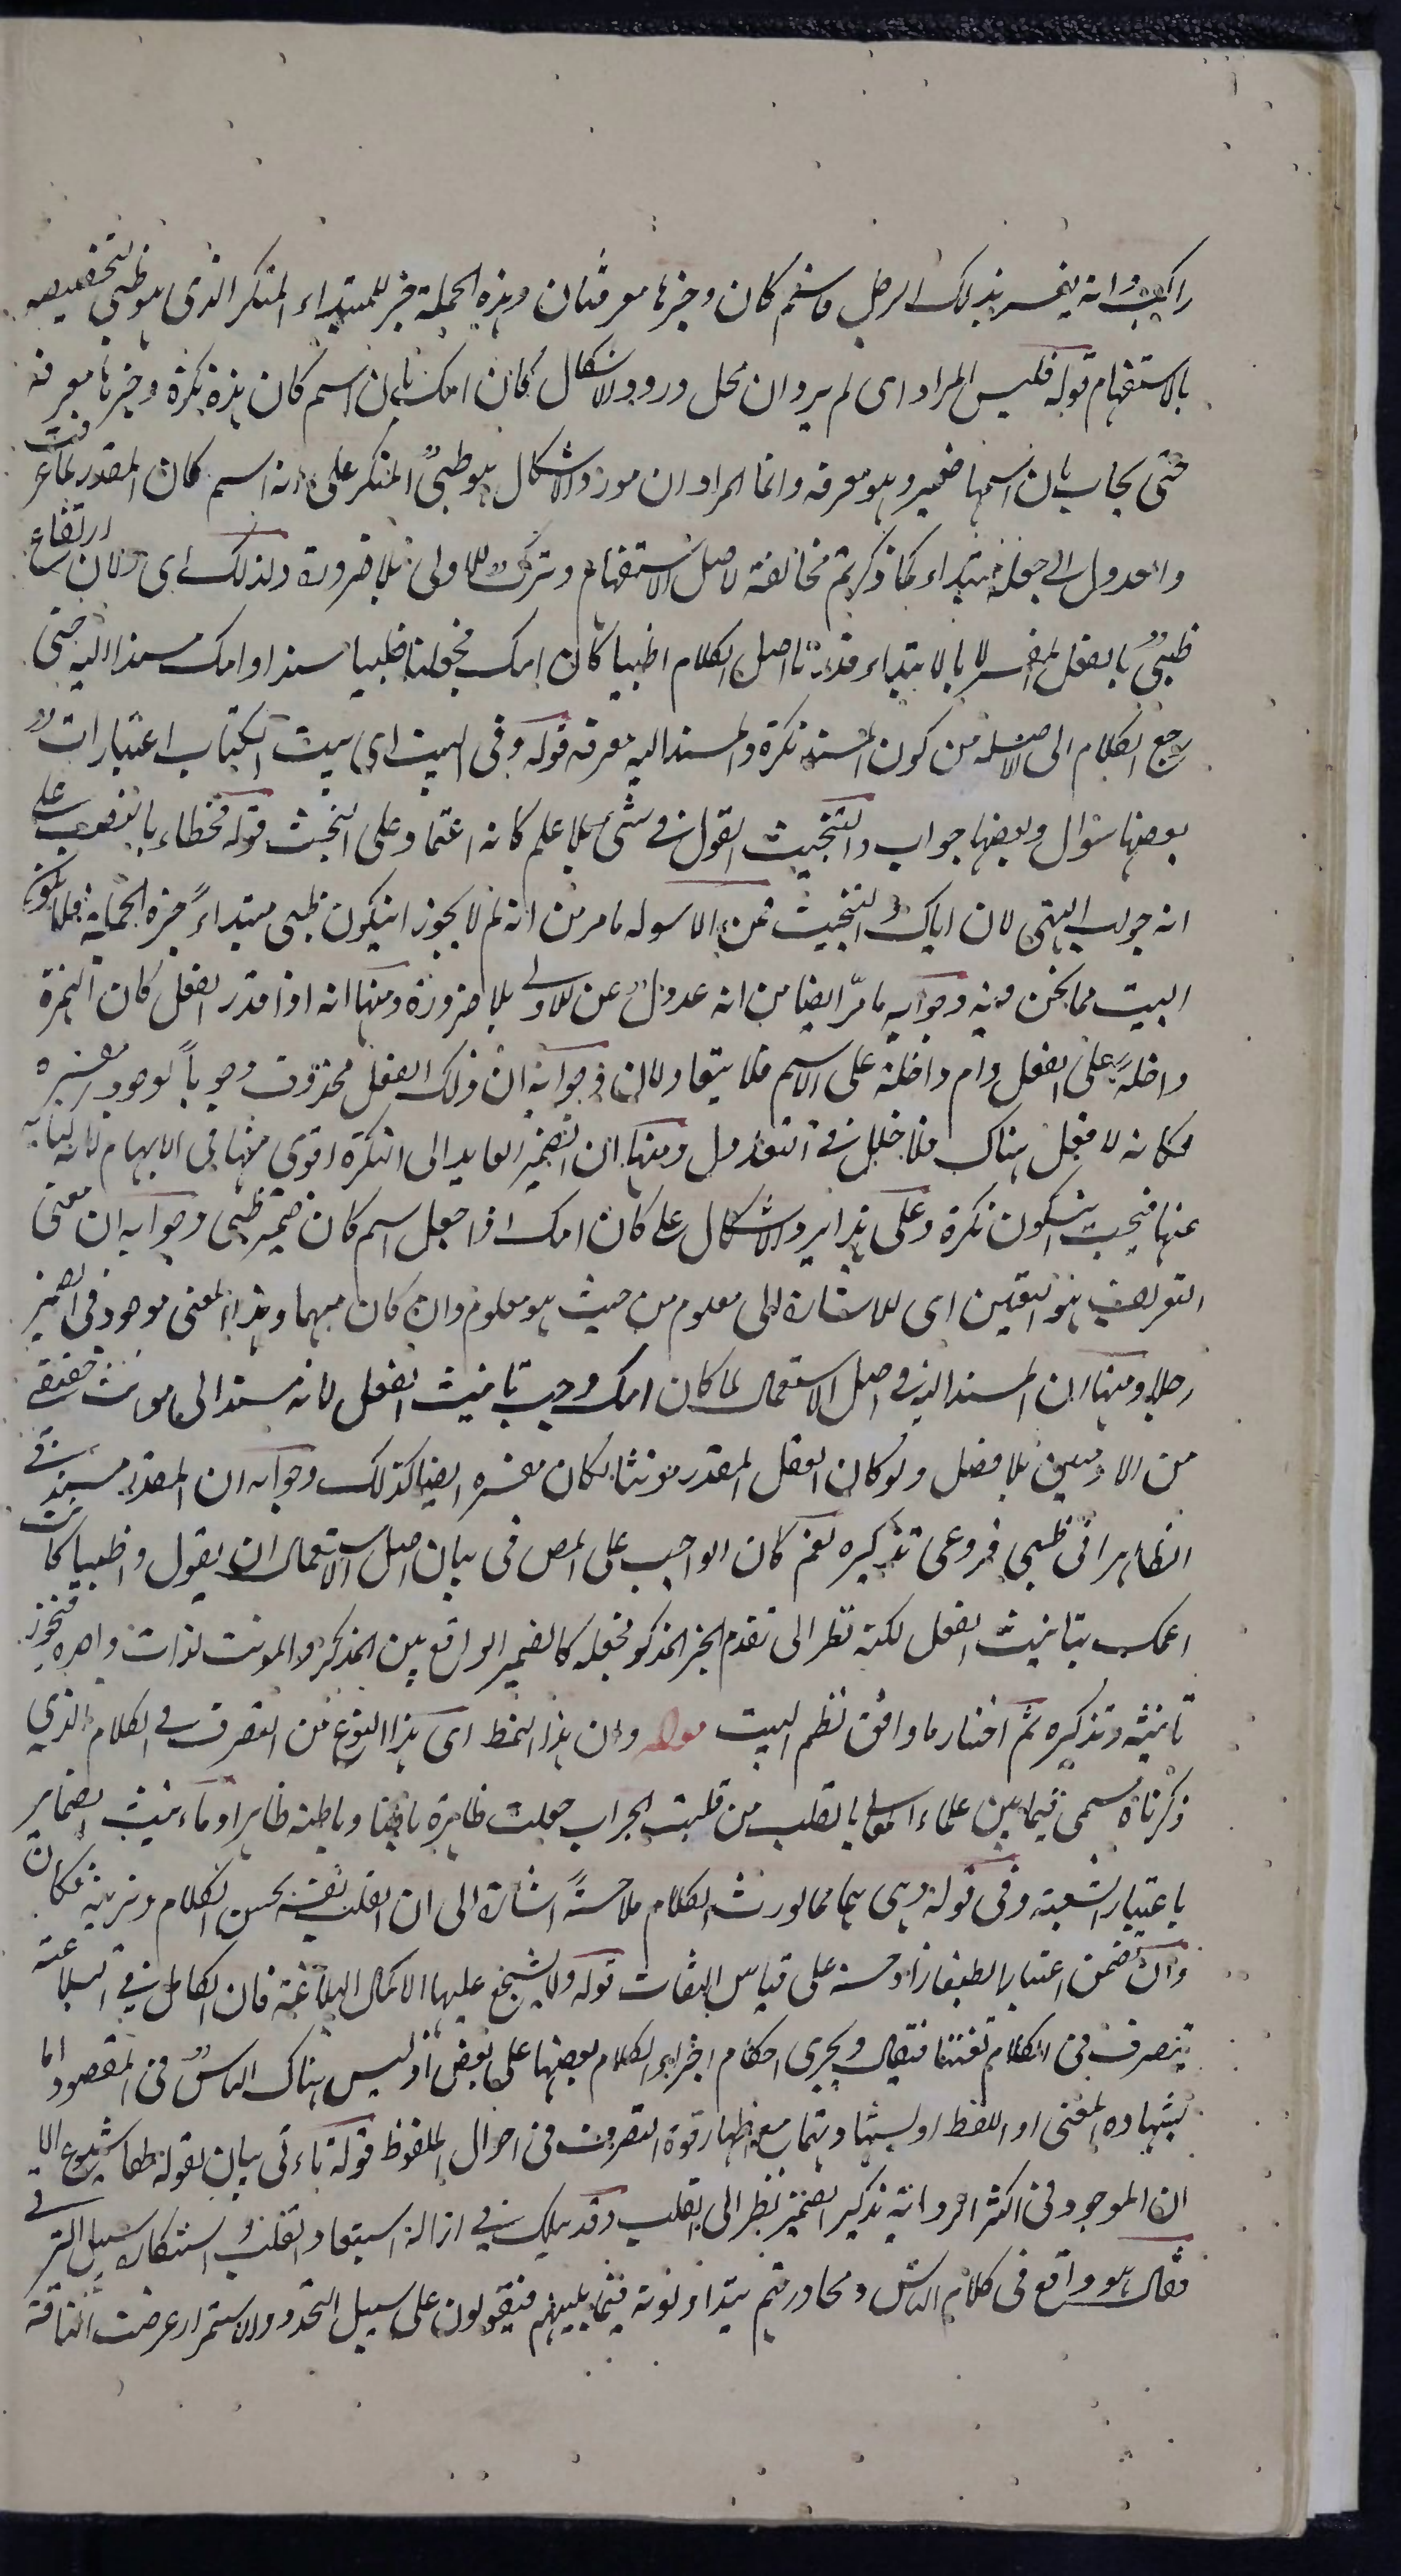 راكب وانه يفسر بذلك الرجل فاسم كان وخبرها معرفتان وهذه الجملة خبر للمبتداء المنكر الذى هو ظبى لتخصيصه
بالاستفهام قوله فليس المراد اى لم يرد ان محل ورود الاشكال كان امك بان اسم كان هذه نكرة وخبرها معرفة
حتى يجاب بان اسمها ضمير وهو معرفة وانما المراد ان مورد الاشكال هو ظبىٌ المنكر على انه اسم كان المقدر لما عرفت
والعدول الى جعله مبتداء كما ذكرتم مخالفة لاصل الاستفهام وترك للاولى بلا ضرورة ولذلك اى ولان ارتفاع
ظبىٌ بالفعل المفسر لا بالابتداء قدرنا اصل الكلام اظبيا كان امك فجعلنا ظبيا مسندا وامك مسندا اليه حتى
رجع الكلام الى اصله من كون المسند نكرة والمسند اليه معرفة قوله وفى البيت اى بيت الكتاب اعتبارات
بعضها سؤال وبعضها جواب والتبخيت القول فى شئ بلا علم كانه اعتماد على البخت قوله فخطاء بالنصب على
انه جواب النهى لان اياك والتبخيت فمن الاسوله ما مر من انه لم لا يجوز ان يكون ظبى مبتداءً خبره الجملة فلا يكون
البيت مما نحن فيه وجوابه ما مرّ ايضا من انه عدولٌ عن الاولى بلا ضرورة ومنها انه اذا قدر الفعل كان الهمزة
داخلةً على الفعل وام داخلة على الاسم فلا يتعادلان وجوابه ان ذلك الفعل محذوف وجوباً لوجود مفسره
فكانه لا فعل هناك فلا خلل فى التعادل ومنها ان الضمير العايد الى النكرة اقوى منها فى الابهام لانه كناية
عنها فيجب ان يكون نكرة وعلى هذا يرد الاشكال على كان امك اذا جعل اسم كان ضمير ظبى وجوابه ان معنى
التعريف هو التعيين اى الاشارة الى معلوم من حيث هو معلوم وان كان مبهما وهذا المعنى موجود فى الضمير
رجلا ومنها ان المسند اليه فى اصل الاستعمال لما كان امك وجب تانيث الفعل لانه مسند الى مونث حقيقى
من الادميين بلا فصل ولو كان الفعل المقدر مونثا لكان مفسره ايضا كذلك وجوابه ان المقدر مسند فى
الظاهر الى ظبى فروعى تذكيره نعم كان الواجب على المص فى بيان اصل الاستعمال ان يقول اظبيا كانت
امك بتانيث الفعل لكنه نظر الى تقدم الخبر المذكر فجعله كالضمير الواقع بين المذكر والمونث لذات واحدة فيجوز
تانيثه وتذكيره ثم اختار ما وافق نظم البيت قوله وان هذا النمط اى هذا النوع من التصرف فى الكلام الذى
ذكرناه سمى فيما بين علماء المعانى بالقلب من قلبت الجراب جعلت ظاهره باطنا وباطنه ظاهرا وتاءنيث الضماير
باعتبار الشعبة وفى قوله وهى مما يورث الكلام ملاحةً اشارة الى ان القلب نفسه يحسن الكلام ويزينه فكان
وان تضمن اعتبارا لطيفا زاد حسنه على قياس التفات قوله ولا يشجع عليها الا كمال البلاغة فان الكامل فى البلاغة
يتصرف فى الكلام تفننا فيقال ويجرى احكام اجزاء الكلام بعضها على بعض اذ ليس هناك الباسٌ فى المقصود اما
بشهاده المعنى او اللفظ او بشهادتهما مع اظهار قوة التصرف فى احوال الملفوظ قوله تاءتى بيان لقوله لها شيوع الا
ان الموجود فى اكثر الروايه تذكير الضمير نظر الى القلب وقد يسلك فى ازالة استبعاد القلب واستنكاره سبيل الترقى
فقال هو واقع فى كلام الناس ومحاورتهم يتداولونه فيما بينهم فيقولون على سبيل التجدد والاستمرار عرضت الناقة